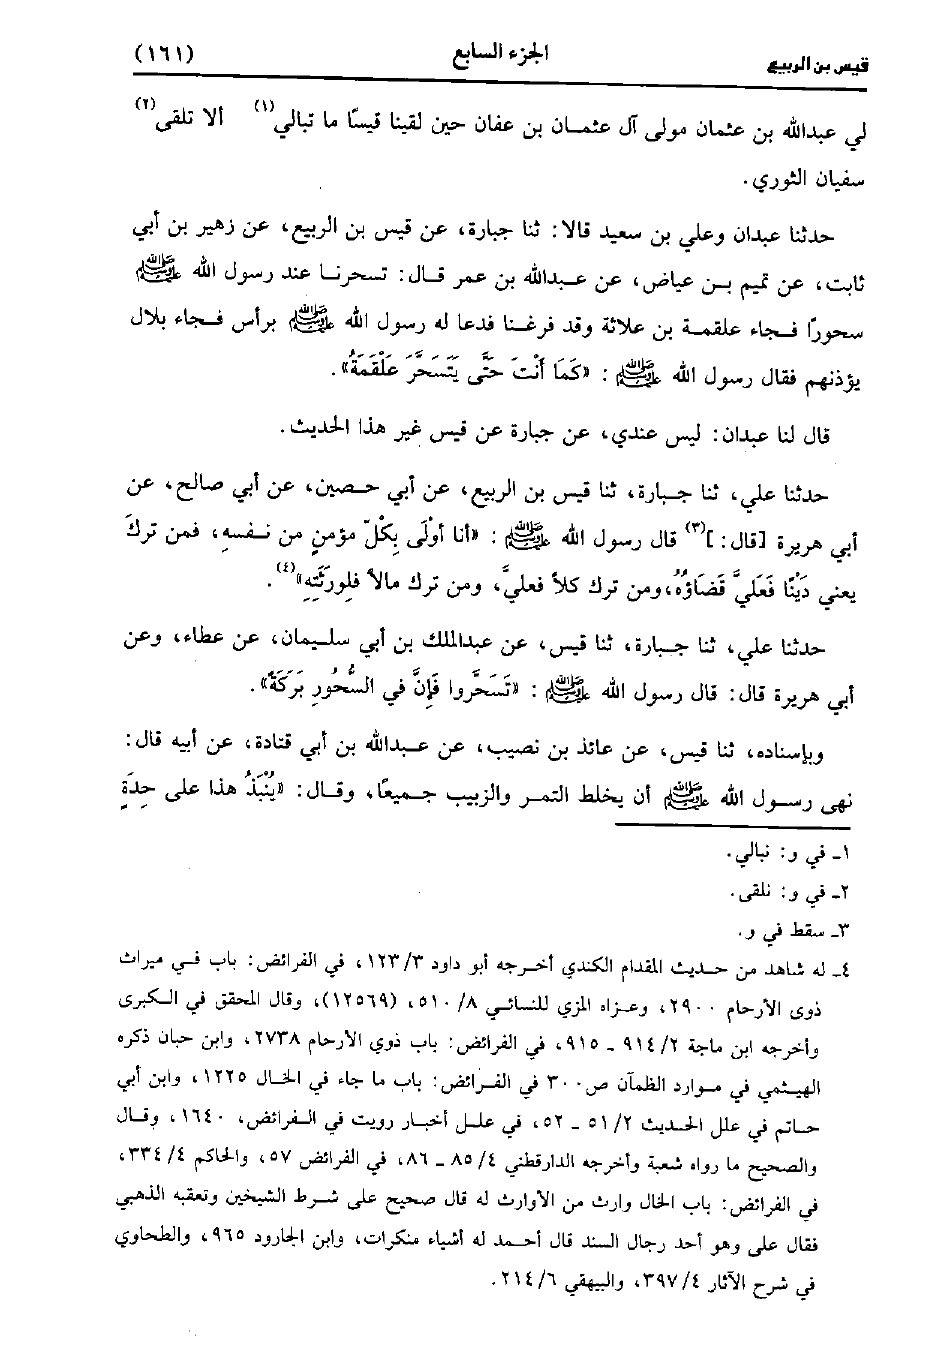 قيس بن الربيع الجزء السابع (١٦١)
لي عبدالله بن عثمان مولى آل عثمـان بن عفان حين لقينا قيسًا ما تبالي(١) ألا تلقى(٢)
سفيان الثوري.
حدثنا عبدان وعلي بن سعيد قالا: ثنا جبارة، عن قيس بن الربيع، عن زهير بن أبي
ثابت، عن تميم بـن عياض، عن عـبدالله بن عمر قـال: تسحرنـا عند رسول الله ﷺ
سحورًا فـجاء علقمة بن علاثة وقد فرغـنا فدعا له رسول الله ﷺ برأس فـجاء بلال
يؤذنهم فقال رسول الله ﷺ: «كَمَا أَنْتَ حَتَّى يَتَسَحَّرَ عَلْقَمَةُ».
قال لنا عبدان: ليس عندي، عن جبارة عن قيس غير هذا الحديث.
حدثنا علي، ثنا جـبارة، ثنا قيس بن الربيع، عن أبي حـصين، عن أبي صالح، عن
أبي هريرة [قال: ](٣) قال رسول الله ﷺ: «أنا أَوْلَى بِكُلّ مؤمنٍ من نـفسهِ، فمن تركَ
يعني دَيْنًا فَعَلَيَّ قَضَاؤُهُ،ومن ترك كلاً فعليَّ، ومن ترك مالاً فلِورَثَتِهِ»(٤).
حدثنا علي، ثنا جـبارة، ثنا قيس، عن عبدالملك بن أبي سلـيمان، عن عطاء، وعن
أبي هريرة قال: قال رسول الله ﷺ: «تَسَحَّروا فَإِنَّ في السُّحُورِ بَرَكَةً».
وبإسناده، ثنا قيس، عن عائذ بن نصيب، عن عـبدالله بن أبي قتادة، عن أبيه قال:
نهى رسـول الله ﷺ أن يخلط التمر والزبيب جـميعًا، وقـال: «يُنْبَذُ هذا على حِدَةٍ
١ـ في و: نبالي.
٢ـ في و: نلقى.
٣ـ سقط في و.
٤ـ له شاهد من حـديث المقدام الكندي أخـرجه أبو داود ١٢٣/٣، في الفرائض: باب فـي ميراث
ذوى الأرحام ٢٩٠٠، وعـزاه المزي للنسائي ٥١٠/٨، (١٢٥٦٩)، وقال المحقق في الـكبرى
وأخرجه ابن ماجة ٩١٤/٢ ـ ٩١٥، في الفرائض: باب ذوي الأرحام ٢٧٣٨، وابن حبان ذكره
الهيـثمي في مـوارد الظمآن ص٣٠٠ في الفـرائض: باب ما جاء في الخـال ١٢٢٥، وابن أبي
حـاتم في علل الحـديث ٥١/٢ ـ ٥٢، في علـل أخبـار رويت في الـفرائض، ١٦٤٠، وقـال
والصحيح ما رواه شعبة وأخرجه الدارقطني ٨٥/٤ ـ ٨٦، في الفرائض ٥٧، والحاكم ٣٣٤/٤،
في الفرائض: باب الخال وارث من الأوارث له قال صحيح على شـرط الشيخين وتعقبه الذهبي
فقال على وهو أحد رجال السند قال أحـمد له أشياء منكرات، وابن الجارود ٩٦٥، والطحاوي
في شرح الآثار ٣٩٧/٤، والبيهقي ٢١٤/٦.